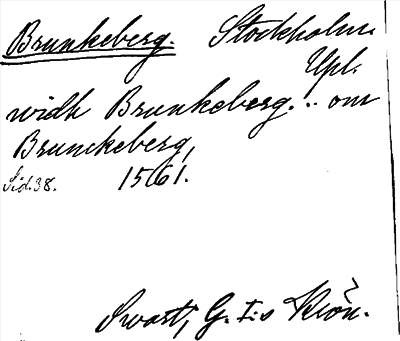 Brunkeberg. Stockholm.
Upl.
widh Brunkeberg... om
Brunckeberg,
Sid. 38. 1561.
Swart, G. I:s Krön.